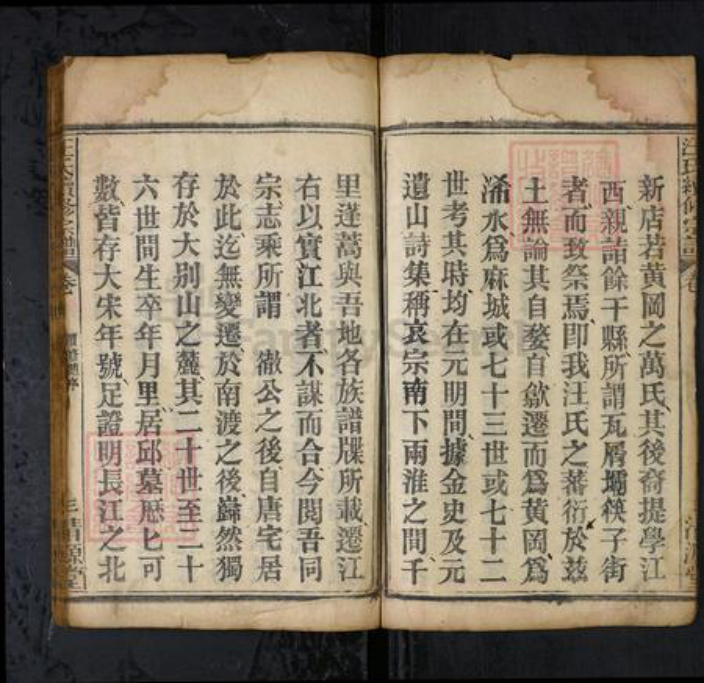 新店若黃岡之萬氏其後裔提學江
西親詣餘干縣所謂瓦屑壩筷子街
者而致祭焉卽我汪氏之蕃衍於茲
土無論其自婺自歙遷而爲黃岡爲
浠水爲麻城或七十三世或七十二
世考其時均在元明間據金史及元
遺山詩集稱哀宗南下兩淮之間千
里蓬蒿與吾地各族譜牒所載遷江
右以實江北者不謀而合今閱吾同
宗志乘所謂 徹公之後自唐宅居
於此迄無變遷於南渡之後巋然獨
存於大别山之麓其二十世至二十
六世間生卒年月里居邱墓歷匕可
數皆存大宋年號足證明長江之北
汪氏續修宗譜 卷
三 清源堂